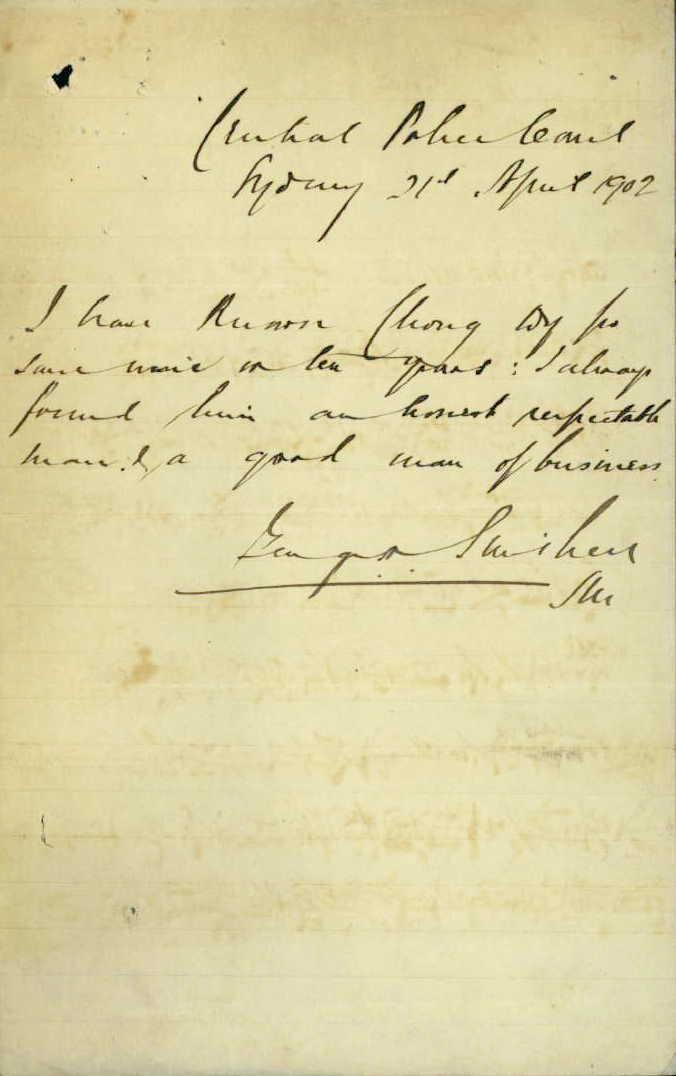 Central Police Court
Sydney 21st April 1902
I have known Chong Dy for
some nine or ten years : I always
found him an honest respectable
man : & a good man of business
George Smithers
SM